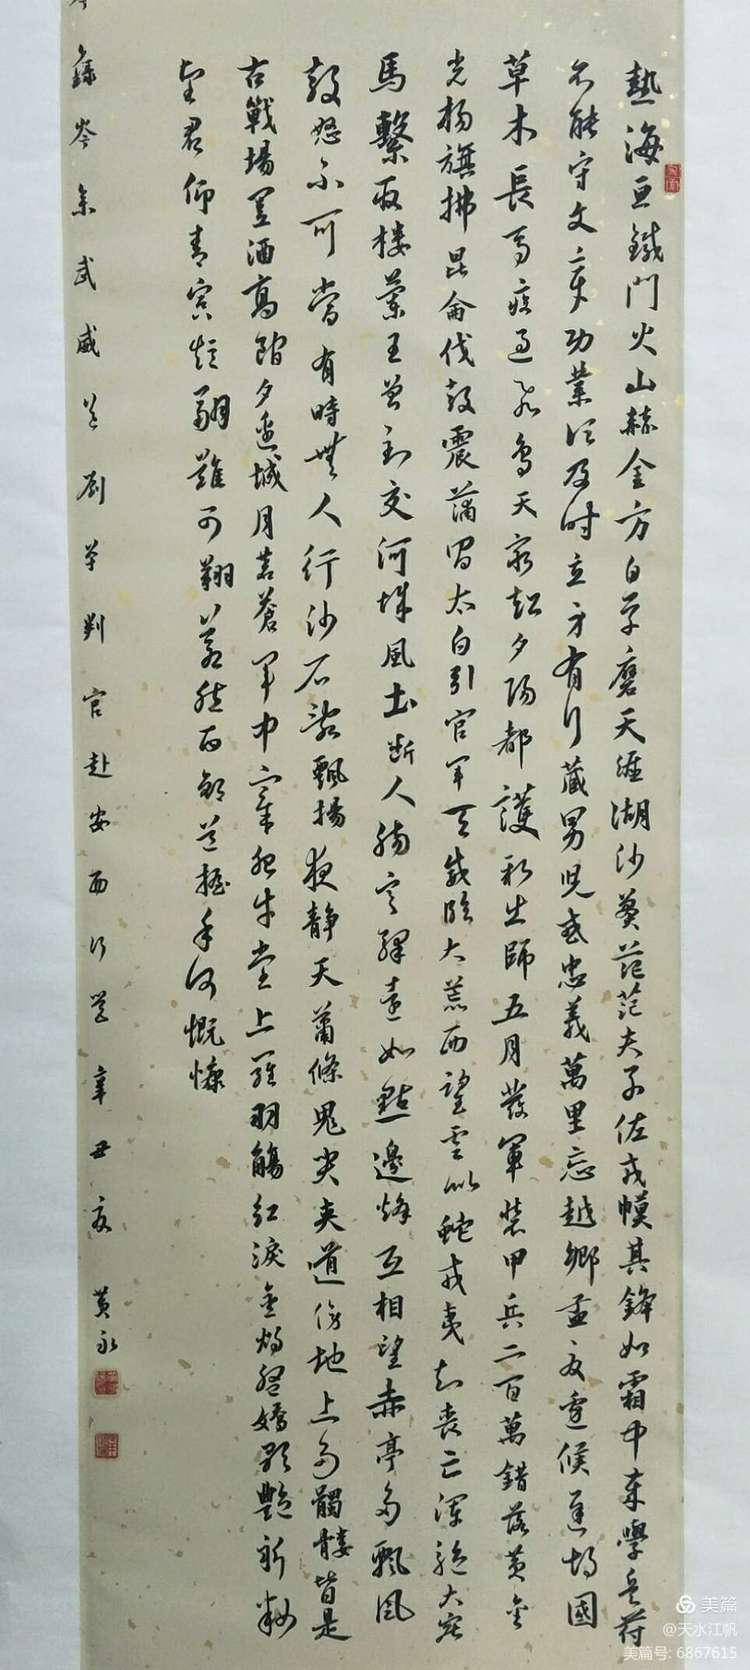 熱海亘鐵門火山赫金方白草磨天涯湖沙莽茫茫夫子佐戎幙其鋒如霜中歲學兵符
不能守文章功業須及時立身有行藏男兒感忠義萬里忘越鄉孟夏邊候遲胡國
草木長馬疾過飛鳥天窮超夕陽都護新出師五月發軍裝甲兵二百萬錯落黃金
光揚旗拂昆侖伐鼓震蒲昌太白引官軍天威臨大荒西望雲似蛇戎夷知喪亡渾驅大宛
馬繫取樓蘭王曾到交河城風土斷人腸寒驛遠如點邊烽互相望赤亭多飄風
鼓怒不可當有時無人行沙石亂飄揚夜靜天蕭條鬼哭夾道傍地上多髑髏皆是
古戰場置酒高館夕邊城月蒼蒼軍中宰肥牛堂上羅羽觴紅淚金燭盤嬌歌艷新妝
望君仰青冥短翮難可翔蒼然西郊道握手何慨慷
錄岑參武威送劉單判官赴安西行營辛丑夏 黃永
美篇
@天水江帆
美篇号: 6867615